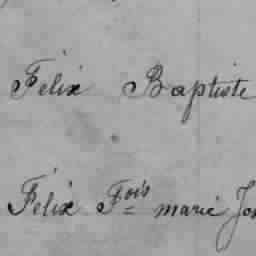 Félix Baptiste
Félix Fois marie